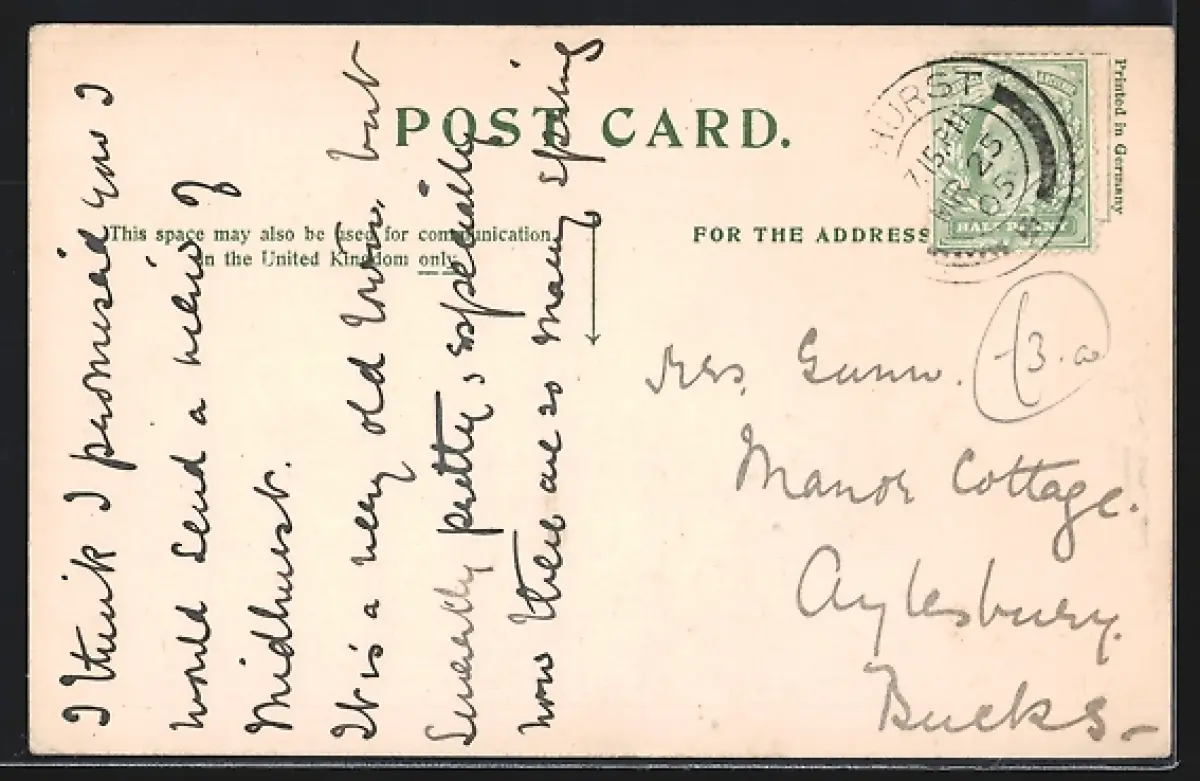 POST CARD.
This space may also be used for communication
in the United Kingdom only.
FOR THE ADDRESS
Printed in Germany
HURST
7.15 PM
MR 25
05
HALF PENNY
I think I promised you I
would send a view of
Midhurst.
It is a very old town, but
pretty, especially
now there are so many spring
Mrs. Gunn.
Manor Cottage.
Aylesbury.
Bucks-